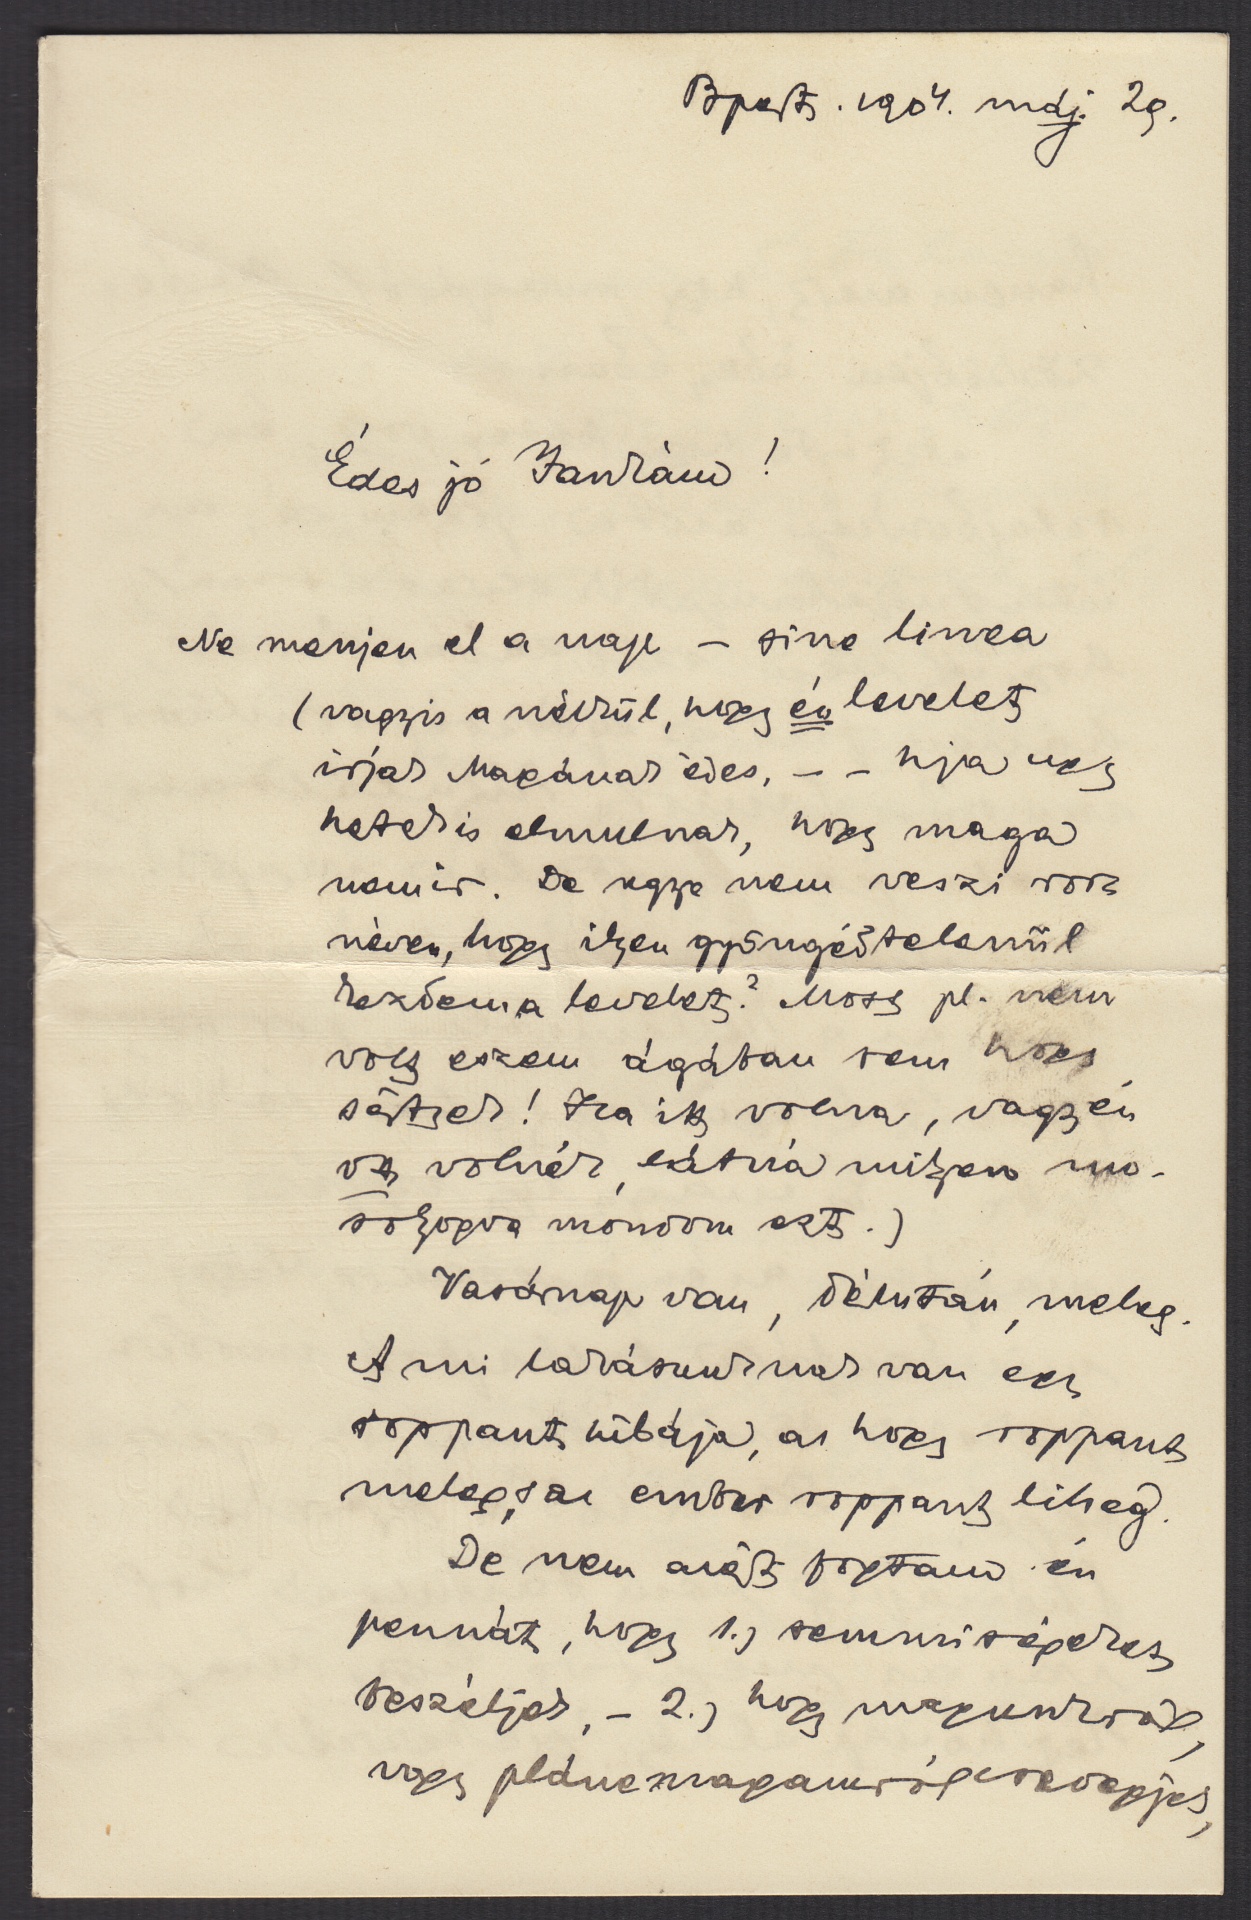 Bpest. 1904. máj. 29.
Édes jó Jankám!
Ne menjen el a nap – sine linea
(vagyis a nélkül, hogy én levelet
írjak Magának édes, – – hja egy
hetek is elmulnak, hogy maga
nem ir. De ugye nem veszi rosz
néven, hogy ilyen gyöngédtelenül
kezdem a levelet? Most pl. nem
volt eszem ágában sem hogy
sértsek! Ha itt volna, vagy én
ott volnék, látná milyen mo-
solyogva mondom ezt.)
Vasárnap van, délután, meleg.
A mi lakásunknak van egy
roppant hibája, az hogy roppant
meleg, s az ember roppant liheg.
De nem azért fogtam én
pennát, hogy 1.) semmiségeket
beszéljek, – 2.) hogy magunkról,
vagy pláne magamról